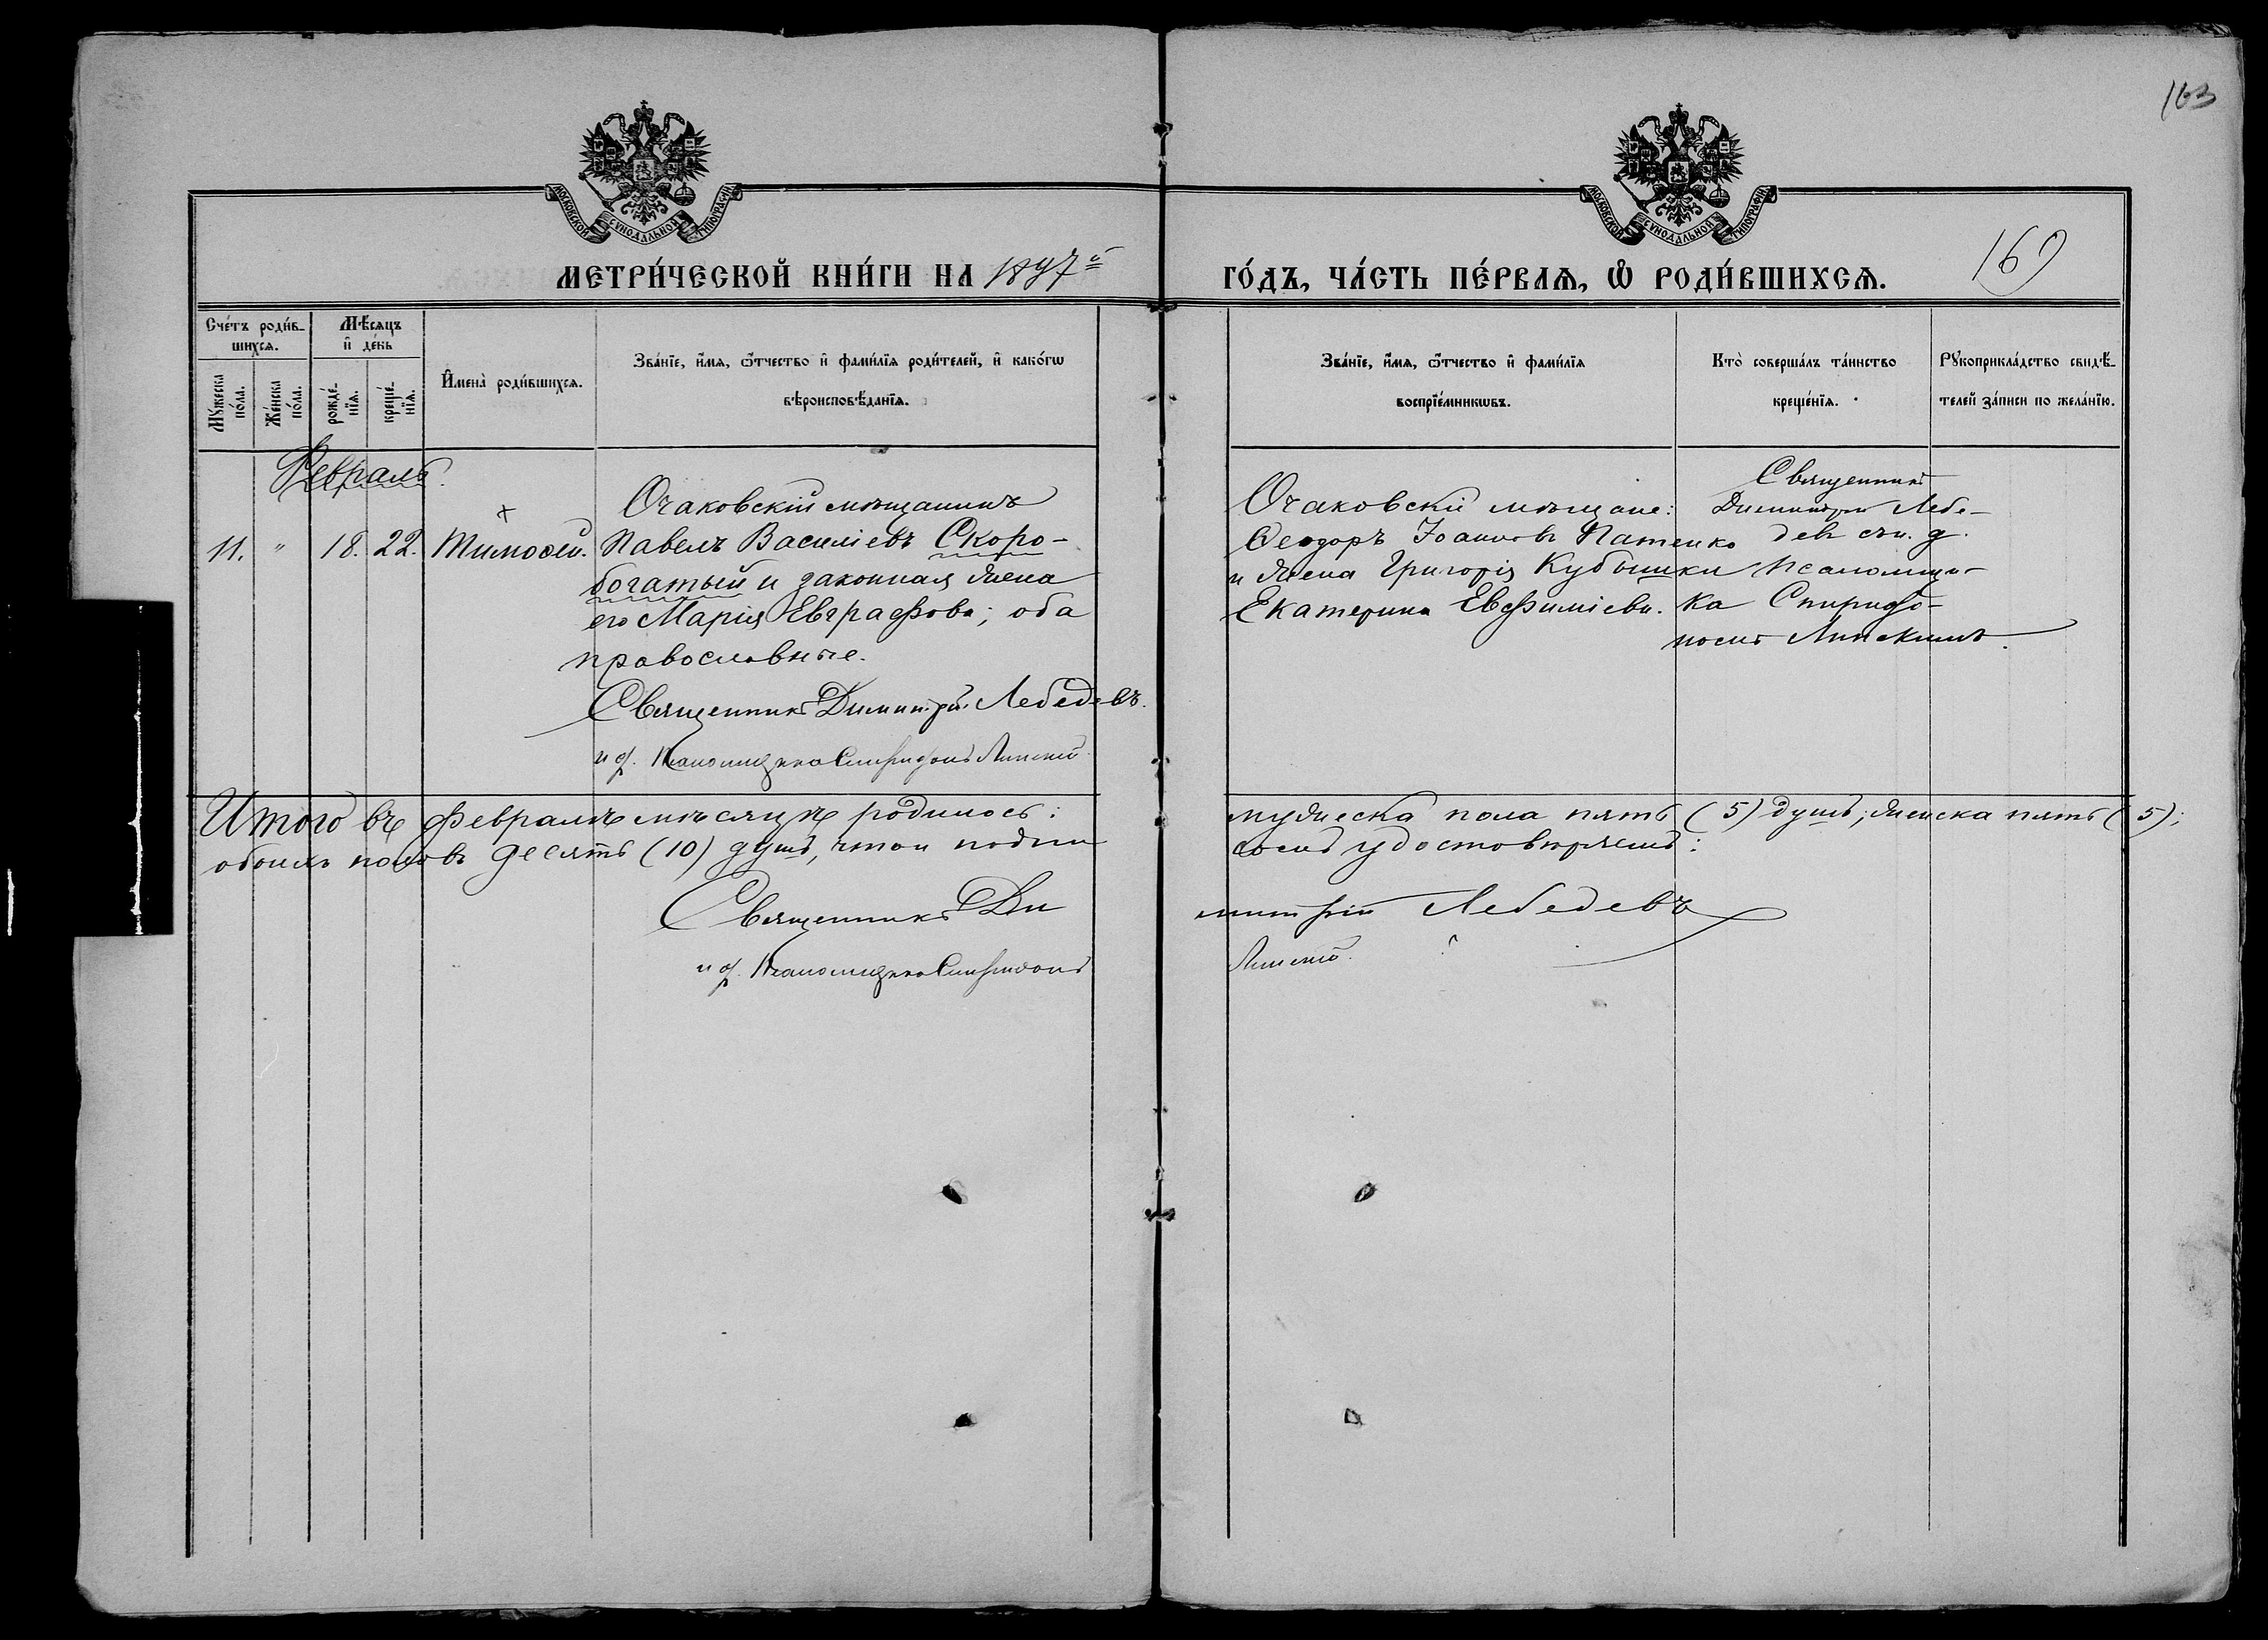 163
МОСКОВСКОЙ СѴНОДАЛЬНОЙ ТИПОГРАФІИ
МОСКОВСКОЙ СѴНОДАЛЬНОЙ ТИПОГРАФІИ
МЕТРИ́ЧЕСКОЙ КНИ́ГИ НА 1897й
ГО́ДЪ, ЧА́СТЬ ПЕ́РВАѦ, Ѡ РОДИ́ВШИХСѦ.
169
Сче́тъ роди́в-
шихсѧ.
Мѣ́сѧцъ
и҆ де́нь
Мꙋ́жеска по́ла.
Же́нска по́ла.
рожде́-
нїѧ.
креще́-
нїѧ.
И҆мена̀ роди́вшихсѧ.
Зва́нїе, и҆́мѧ, ѻ҆́тчество и҆ фами́лїѧ роди́телей, и҆ како́гѡ
вѣроисповѣ́данїѧ.
Зва́нїе, и҆́мѧ, ѻ҆́тчество и҆ фами́лїѧ
воспрїе́мникѡвъ.
Кто̀ соверша́лъ та́инство
креще́нїѧ.
Рꙋкоприкла́дство свидѣ́-
телей за́писи по жела́нїю.
Февраль.
11. " 18. 22. Тимоѳей.
Очаковскій мѣщанинъ
Павелъ Василіевъ Скоро-
богатый и законная жена
его Марія Евграфова; оба
православные.
Священникъ Димитрій Лебедевъ.
и д. Псаломщика Спиридонъ Липскій
Очаковскіе мѣщане:
Ѳеодоръ Іоанновъ Патенко
и жена Григорія Кубышки
Екатерина Евфиміева.
Священникъ
Димитрій Лебе-
девъ съ и. д.
Псаломщи-
ка Спиридо-
номъ Липскимъ.
Итого въ февралѣ мѣсяцѣ родилось: мужеска пола пять (5) душъ; женска пять (5);
обоихъ половъ десять (10) душъ, что и подпи сомъ удостовѣряемъ:
Священникъ Ди митрій Лебедевъ
и д. Псаломщика Спиридонъ Липскій.